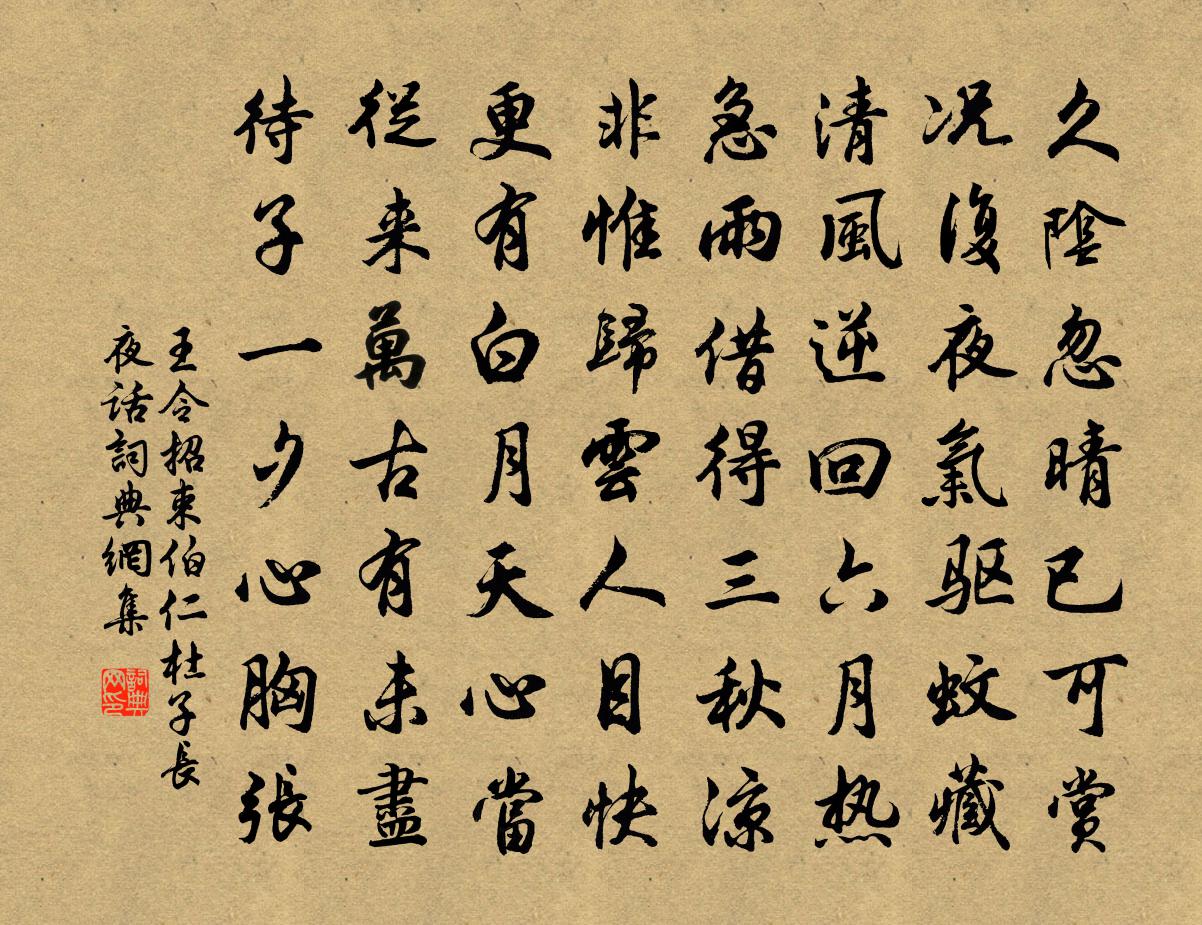 久陰忽晴已可賞
况復夜氣驱蚊藏
清風逆回六月热
急雨借得三秋涼
非惟歸雲人目快
更有白月天心當
從来萬古有未盡
待子一夕心胸張
王令招束伯仁杜子長
夜话詞典網集
詞典
网印